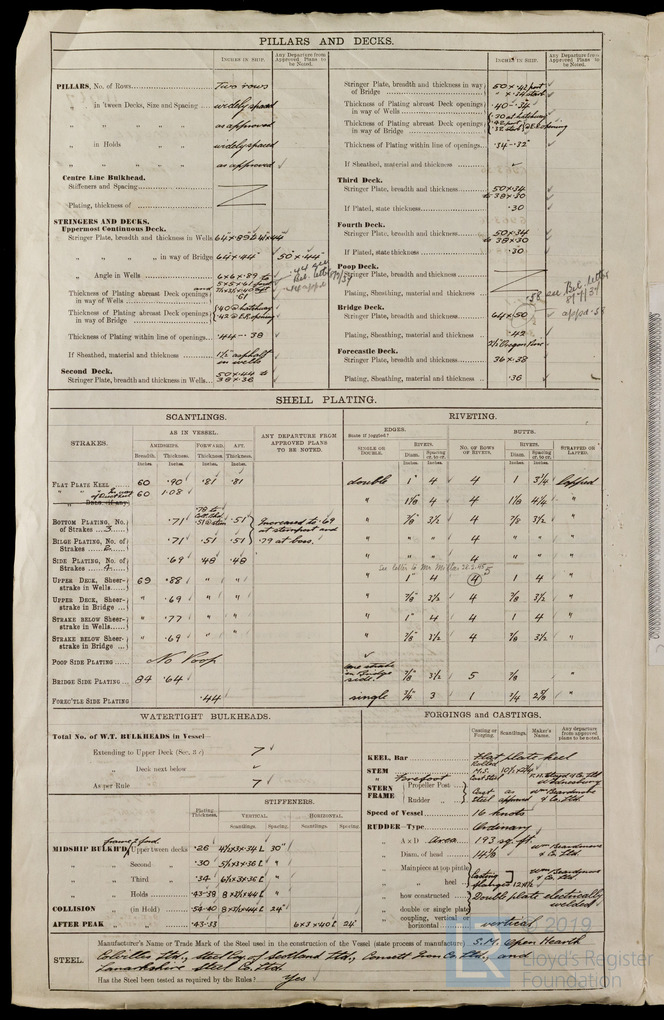 PILLARS AND DECKS.
INCHES IN SHIP.
Any Departure from Approved Plans to be Noted.
PILLARS, No. of Rows Two rows
„ in 'tween Decks, Size and Spacing widely spaced
„ „ „ „ „ as approved
„ in Holds „ „ widely spaced
„ „ „ „ as approved
Centre Line Bulkhead.
Stiffeners and Spacing
Plating, thickness of
STRINGERS AND DECKS.
Uppermost Continuous Deck.
Stringer Plate, breadth and thickness in Wells
„ „ „ „ in way of Bridge 64 × .44 50 × .44
„ Angle in Wells 6×6×.87 to
Thickness of Plating abreast Deck openings in way of Wells .61
Thickness of Plating abreast Deck openings in way of Bridge .40 @ hatchway
Thickness of Plating within line of openings .44 - .38
If Sheathed, material and thickness 1½" asphalt in wells
Second Deck.
Stringer Plate, breadth and thickness in Wells 50×.44 to 38×.36
INCHES IN SHIP.
Any Departure from Approved Plans to be Noted.
Stringer Plate, breadth and thickness in way of Bridge
Thickness of Plating abreast Deck openings in way of Wells .40 - .34
Thickness of Plating abreast Deck openings in way of Bridge
Thickness of Plating within line of openings .34 - .32
If Sheathed, material and thickness
Third Deck.
Stringer Plate, breadth and thickness 50×.34 to 38×.30
If Plated, state thickness .30
Fourth Deck.
Stringer Plate, breadth and thickness 50×.34 to 38×.30
If Plated, state thickness .30
Poop Deck.
Stringer Plate, breadth and thickness
Plating, Sheathing, material and thickness
.58 see Bel. letter
Bridge Deck.
Stringer Plate, breadth and thickness 64×.50
Plating, Sheathing, material and thickness .42
2½" Oregon Pine
Forecastle Deck.
Stringer Plate, breadth and thickness 36×.38
Plating, Sheathing, material and thickness .36
SHELL PLATING.
SCANTLINGS.
RIVETING.
STRAKES.
AS IN VESSEL.
AMIDSHIPS. FORWARD. AFT.
Breadth. Thickness. Thickness. Thickness.
Inches. Inches. Inches. Inches.
ANY DEPARTURE FROM APPROVED PLANS TO BE NOTED.
EDGES.
State if joggled?
SINGLE OR DOUBLE.
RIVETS.
Diam. Spacing cr. to cr.
BUTTS.
NO. OF ROWS OF RIVETS.
RIVETS.
Diam. Spacing cr. to cr.
STRAPPED OR LAPPED.
FLAT PLATE KEEL 60 .90 .81 .81 double 1" 4 4 1 3¾ lapped
60 1.08 „ 1⅛ 4 4 1⅛ 4¼ „
BOTTOM PLATING, No. of Strakes 3 .71 .51 Increased to .69 at sternpost and .79 at boss. „ ⅞ 3½ 4 ⅞ 3½ „
BILGE PLATING, No. of Strakes 2 .71 .51 .51 „ „ „ 4 „ „ „
SIDE PLATING, No. of Strakes 4 .69 .48 .48 „ „ „ 4 „ „ „
See letter to Mr Millar
UPPER DECK, Sheerstrake in Wells 69 .88 „ „ „ 1" 4 4 5 1 4 „
UPPER DECK, Sheerstrake in Bridge „ .69 „ „ „ ⅞ 3½ 4 ⅞ 3½ „
STRAKE BELOW Sheerstrake in Wells „ .77 „ „ „ 1" 4 4 1 4 „
STRAKE BELOW Sheerstrake in Bridge „ .69 „ „ „ ⅞ 3½ 4 ⅞ 3½ „
POOP SIDE PLATING No Poop
BRIDGE SIDE PLATING 84 .64 one strake in Bridge side. ⅞ 3½ 5 ⅞ „
FOREC'TLE SIDE PLATING .44 single ¾ 3 1 ¾ 2⅝ „
WATERTIGHT BULKHEADS.
Total No. of W.T. BULKHEADS in Vessel—
Extending to Upper Deck (Sec. 3 c) 7
„ Deck next below
As per Rule 7
Plating Thickness.
STIFFENERS.
VERTICAL. HORIZONTAL.
Scantlings. Spacing. Scantlings. Spacing.
MIDSHIP BULKH'D, Upper tween decks .26 4½×3×.34 L 30"
„ „ Second „ .30 5½×3×.36 L „
„ „ Third „ .34 6½×3×.36 L „
„ „ Holds .43-.38 8×3½×.44 L „
COLLISION „ (in Hold) .54-.40 8×3½×.44 L 24"
AFTER PEAK „ „ .43-.33 6×3×.40 L 24"
FORGINGS and CASTINGS.
Casting or Forging. Scantlings. Maker's Name. Any departure from approved plans to be noted.
KEEL, Bar Flat plate keel
STEM Rolled M.S.
„ Forefoot Cast Steel
STERN FRAME Propeller Post Cast as Wm Beardmore
Rudder „ Steel approved & Co. Ltd.
Speed of Vessel 16 knots
RUDDER—Type Ordinary
„ A x D Area 193 sq. ft.
„ Diam. of head 14⅛ Wm Beardmore & Co. Ltd.
„ Mainpiece at top pintle Casting Wm Beardmore
„ „ heel flanged & Co. Ltd.
„ how constructed Double plate electrically
„ double or single plate welded
„ coupling, vertical or horizontal vertical
STEEL.
Manufacturer's Name or Trade Mark of the Steel used in the construction of the Vessel (state process of manufacture) S.M. Open Hearth
Colvilles Ltd., Steel Coy. of Scotland Ltd., Consett Iron Co. Ltd., and
Lanarkshire Steel Co. Ltd.
Has the Steel been tested as required by the Rules? Yes
© 2019
LR
Lloyd's Register
Foundation